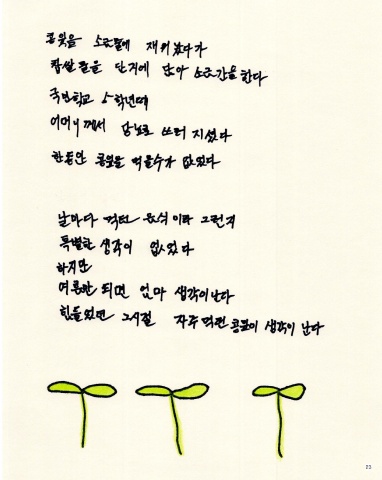 콩잎을 소금물에 재워 놨다가
찹쌀 풀을 단지에 담아 소금간을 한다
국민학교 5학년때
어머니께서 당뇨로 쓰러지셨다
한동안 콩잎을 먹을수가 없었다
날마다 먹던 음식이라 그런지
특별한 생각이 없었다
하지만
여름만 되면 엄마 생각이 난다
힘들었던 그시절 자주 먹던 콩잎이 생각이 난다